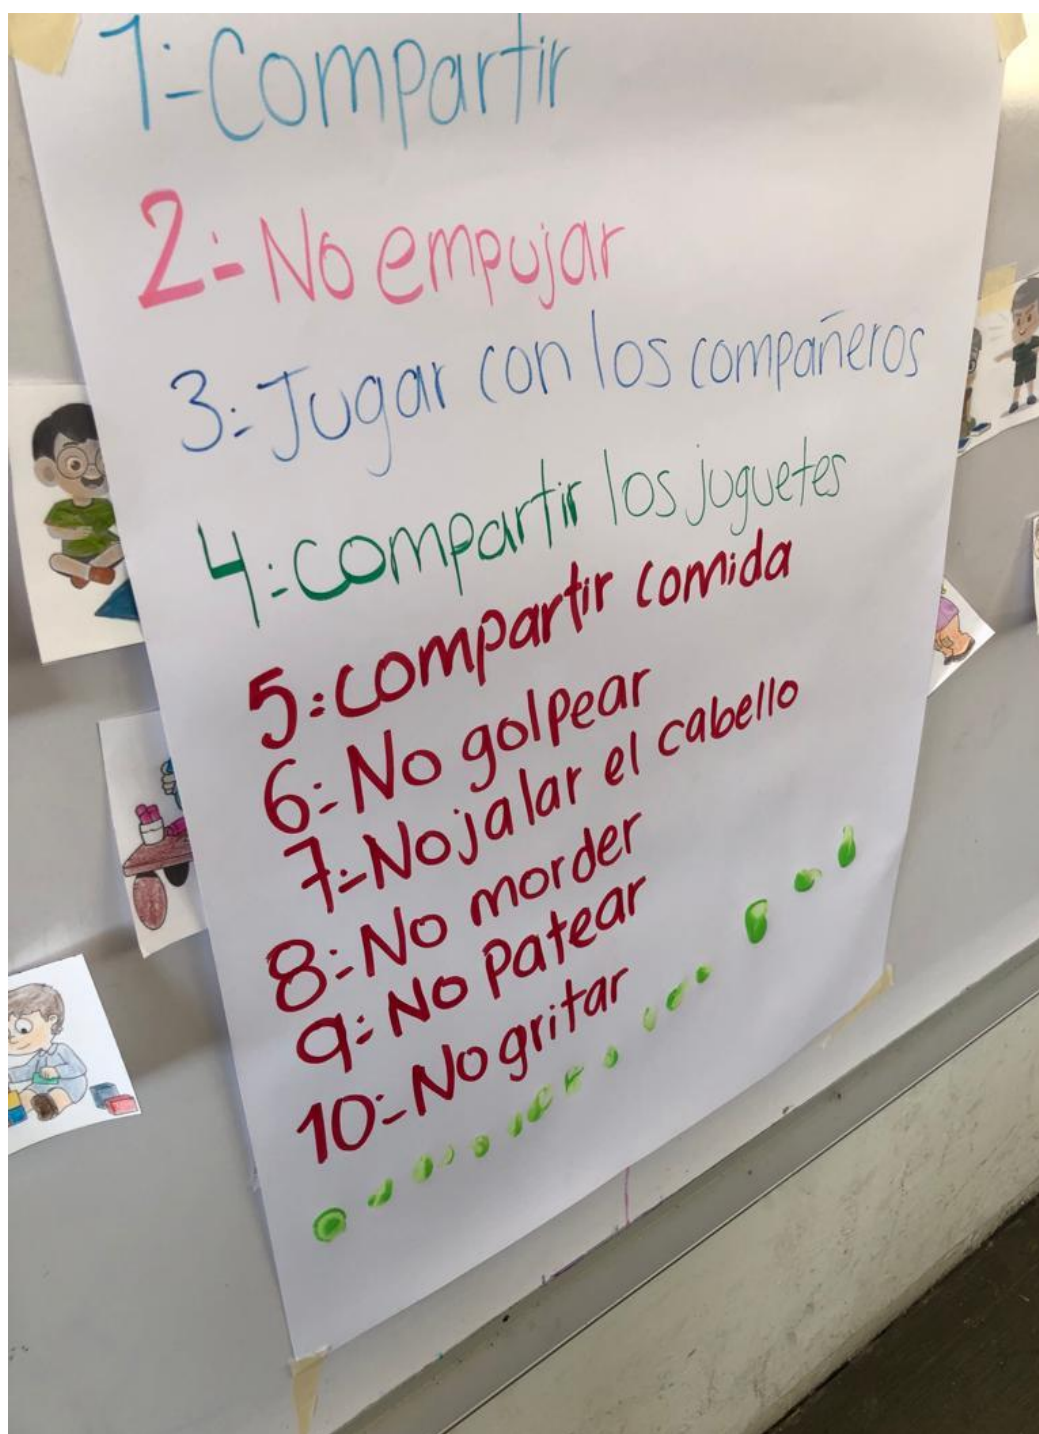 1:-Compartir
2:- No empujar
3:- Jugar con los compañeros
4:- compartir los juguetes
5:- compartir comida
6:- No golpear
7:- No jalar el cabello
8:- No morder
9:- No patear
10:- No gritar